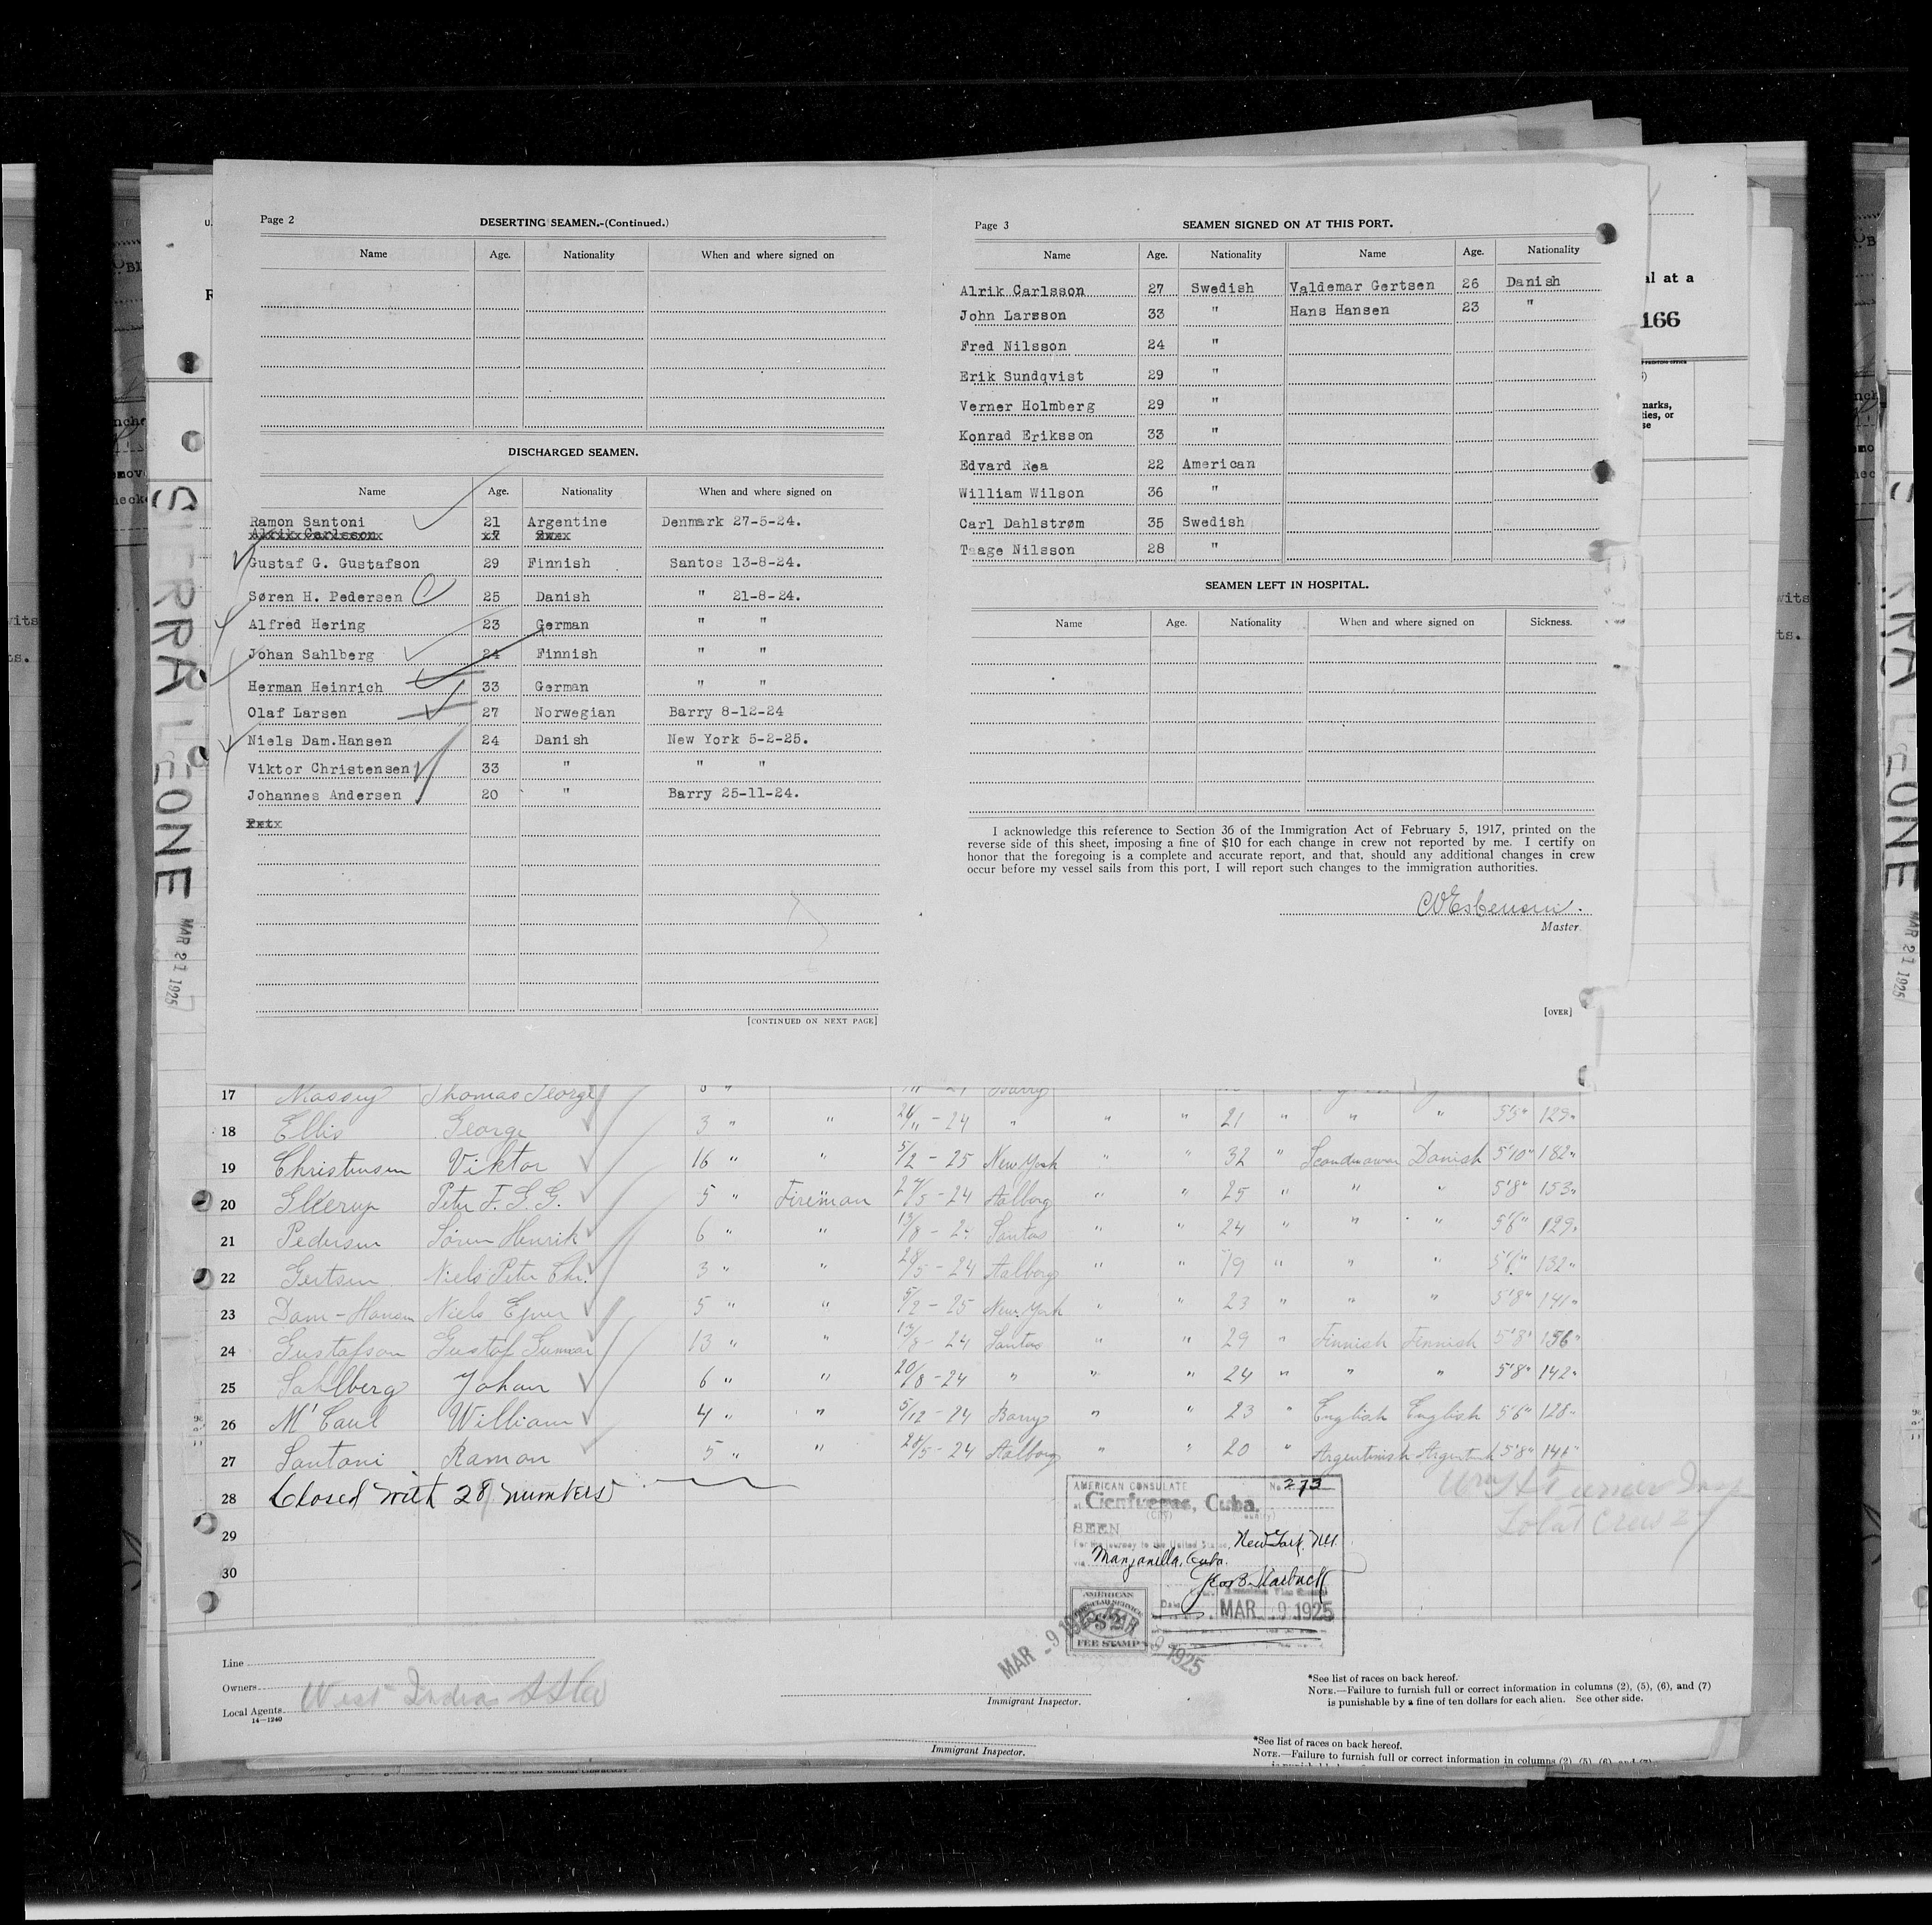 Page 2
DESERTING SEAMEN.-(Continued.)
Name Age. Nationality When and where signed on
DISCHARGED SEAMEN.
Name Age. Nationality When and where signed on
Ramon Santoni 21 Argentine Denmark 27-5-24.
Alrik Carlsson
Gustaf G. Gustafson 29 Finnish Santos 13-8-24.
Søren H. Pedersen 25 Danish " 21-8-24.
Alfred Hering 23 German " "
Johan Sahlberg 24 Finnish " "
Herman Heinrich 33 German " "
Olaf Larsen 27 Norwegian Barry 8-12-24
Niels Dam.Hansen 24 Danish New York 5-2-25.
Viktor Christensen 33 " " "
Johannes Andersen 20 " Barry 25-11-24.
[CONTINUED ON NEXT PAGE]
Page 3
SEAMEN SIGNED ON AT THIS PORT.
Name Age. Nationality Name Age. Nationality
Alrik Carlsson 27 Swedish Valdemar Gertsen 26 Danish
John Larsson 33 " Hans Hansen 23 "
Fred Nilsson 24 "
Erik Sundqvist 29 "
Verner Holmberg 29 "
Konrad Eriksson 33 "
Edvard Rea 22 American
William Wilson 36 "
Carl Dahlstrøm 35 Swedish
Taage Nilsson 28 "
SEAMEN LEFT IN HOSPITAL.
Name Age. Nationality When and where signed on Sickness.
I acknowledge this reference to Section 36 of the Immigration Act of February 5, 1917, printed on the
reverse side of this sheet, imposing a fine of $10 for each change in crew not reported by me. I certify on
honor that the foregoing is a complete and accurate report, and that, should any additional changes in crew
occur before my vessel sails from this port, I will report such changes to the immigration authorities.
Master.
[OVER]
al at a
166
marks,
ties, or
se
SIERRA LEONE MAR 21 1925
17 Massey Thomas George Barry
18 Ellis George 3 " " 24/11 - 24 " " " 21 " " " 5'5" 129"
19 Christensen Viktor 16 " " 5/2 - 25 New York " " 32 " Scandinavian Danish 5'10" 182"
20 Peter F. G. G. 5 " Fireman 27/5 - 24 Aalborg " " 25 " " " 5'8" 153"
21 Pedersen Søren Henrik 6 " " 13/8 - 24 Santos " " 24 " " " 5'6" 129"
22 Gertsen Niels Peter Chr. 3 " " 28/5 - 24 Aalborg " " 19 " " " 5'6" 132"
23 Dam-Hansen Niels Ejner 5 " " 5/2 - 25 New York " " 23 " " " 5'8" 141"
24 Gustafson Gustaf Gunnar 13 " " 13/8 - 24 Santos " " 29 " Finnish Finnish 5'8" 156"
25 Sahlberg Johan 6 " " 20/8 - 24 " " " 24 " " " 5'8" 142"
26 M'Caul William 4 " " 5/12 - 24 Barry " " 23 " English English 5'6" 128"
27 Santoni Ramon 5 " " 28/5 - 24 Aalborg " " 20 " Argentinish Argentinish 5'8" 141"
28 Closed with 28 numbers
29
30
AMERICAN CONSULATE No. 273
at Cienfuegos, Cuba.
(City) (Country)
SEEN
For the journey to the United States, New York, N.Y.
via Manzanillo, Cuba.
Date MAR 9 1925
AMERICAN
CONSULAR SERVICE
$2
FEE STAMP
MAR - 9 1925
MAR 9 1925
Line
Owners
Local Agents West India SS Co
14-1240
Immigrant Inspector.
*See list of races on back hereof.
NOTE.—Failure to furnish full or correct information in columns (2), (5), (6), and (7)
is punishable by a fine of ten dollars for each alien. See other side.
Immigrant Inspector.
*See list of races on back hereof.
NOTE.—Failure to furnish full or correct information in columns (2), (5), (6), and (7)